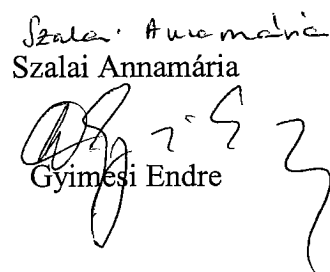 Szalai Annamária
Szalai Annamária
Gyimesi Endre